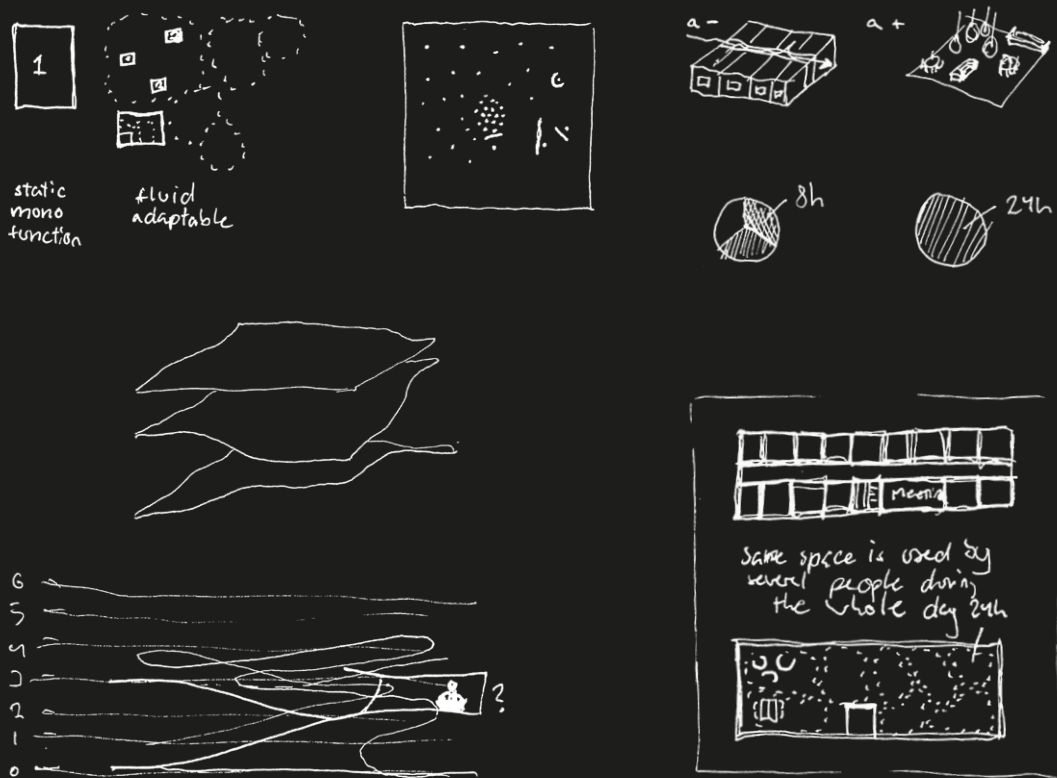 1
static
mono
function
fluid
adaptable
a -
a +
8h
24h
Meeting
same space is used by
several people during
the whole day 24h
6
5
4
3
2
1
0
?